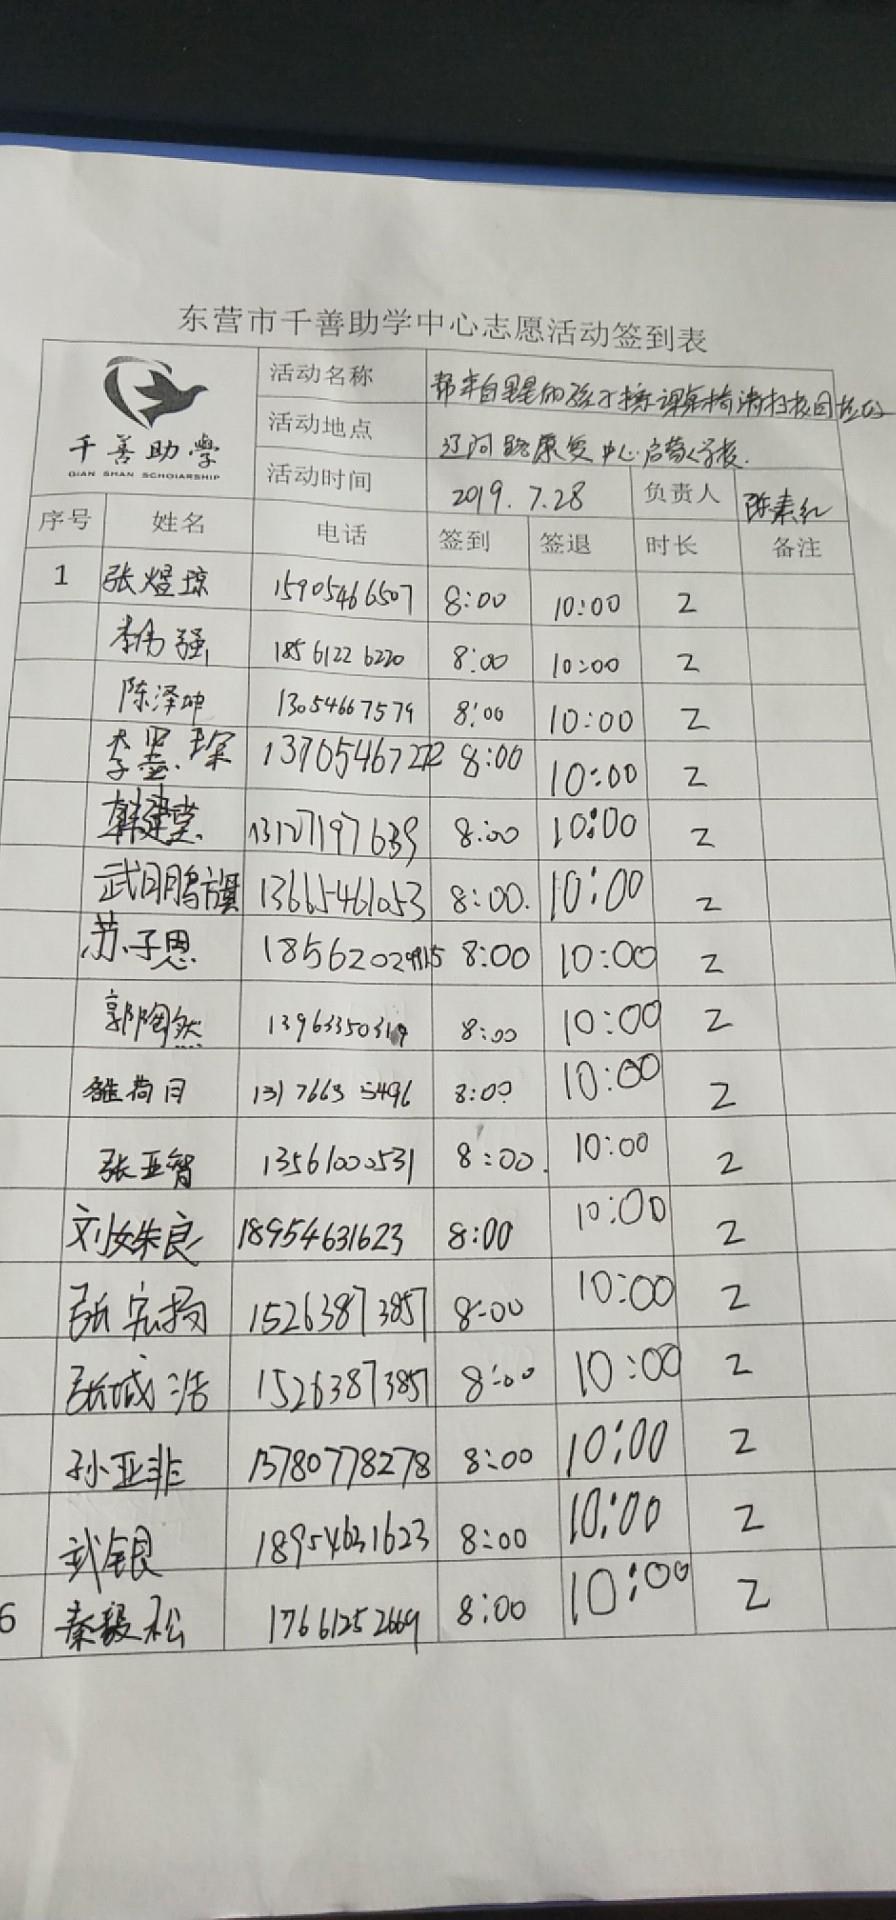 东营市千善助学中心志愿活动签到表
千善助学
QIAN SHAN SCHOIARSHIP
活动名称 帮来自星星的孩子擦课桌椅清扫校园垃圾
活动地点 辽河路康复中心启蒙学校.
活动时间 2019.7.28 负责人 陈素红
序号 姓名 电话 签到 签退 时长 备注
1 张煜琼 15905466507 8:00 10:00 2
李伟强 18561226220 8:00 10:00 2
陈泽坤 13054667579 8:00 10:00 2
李墨琛 13705467272 8:00 10:00 2
韩建堂 13127197639 8:00 10:00 2
武明鹏旗 13665461053 8:00. 10:00 2
苏子恩 18562029815 8:00 10:00 2
郭陶然 13963350319 8:00 10:00 2
荷月 13176635496 8:00 10:00 2
张亚智 13561000531 8:00. 10:00 2
刘姝良 18954631623 8:00 10:00 2
张宏扬 15263873857 8:00 10:00 2
张城浩 15263873857 8:00 10:00 2
孙亚非 13780778278 8:00 10:00 2
武银 18954631623 8:00 10:00 2
6 秦毅松 17661252669 8:00 10:00 2